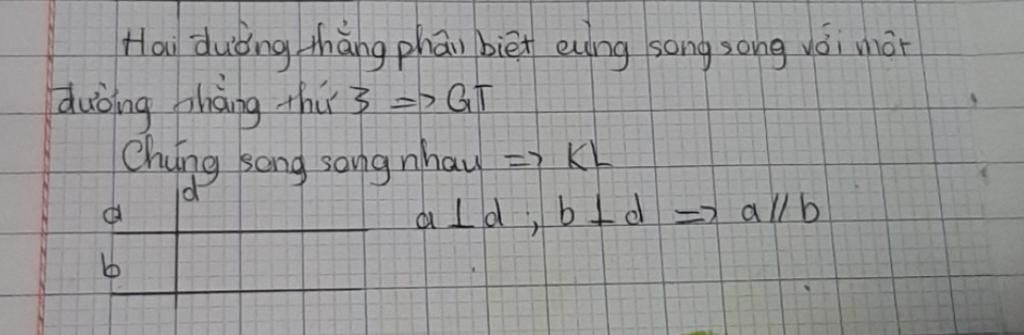 Hai đường thẳng phân biệt cùng song song với một
đường thẳng thứ 3 => GT
Chúng song song nhau => KL
d
a
a ⊥ d ; b ⊥ d => a // b
b